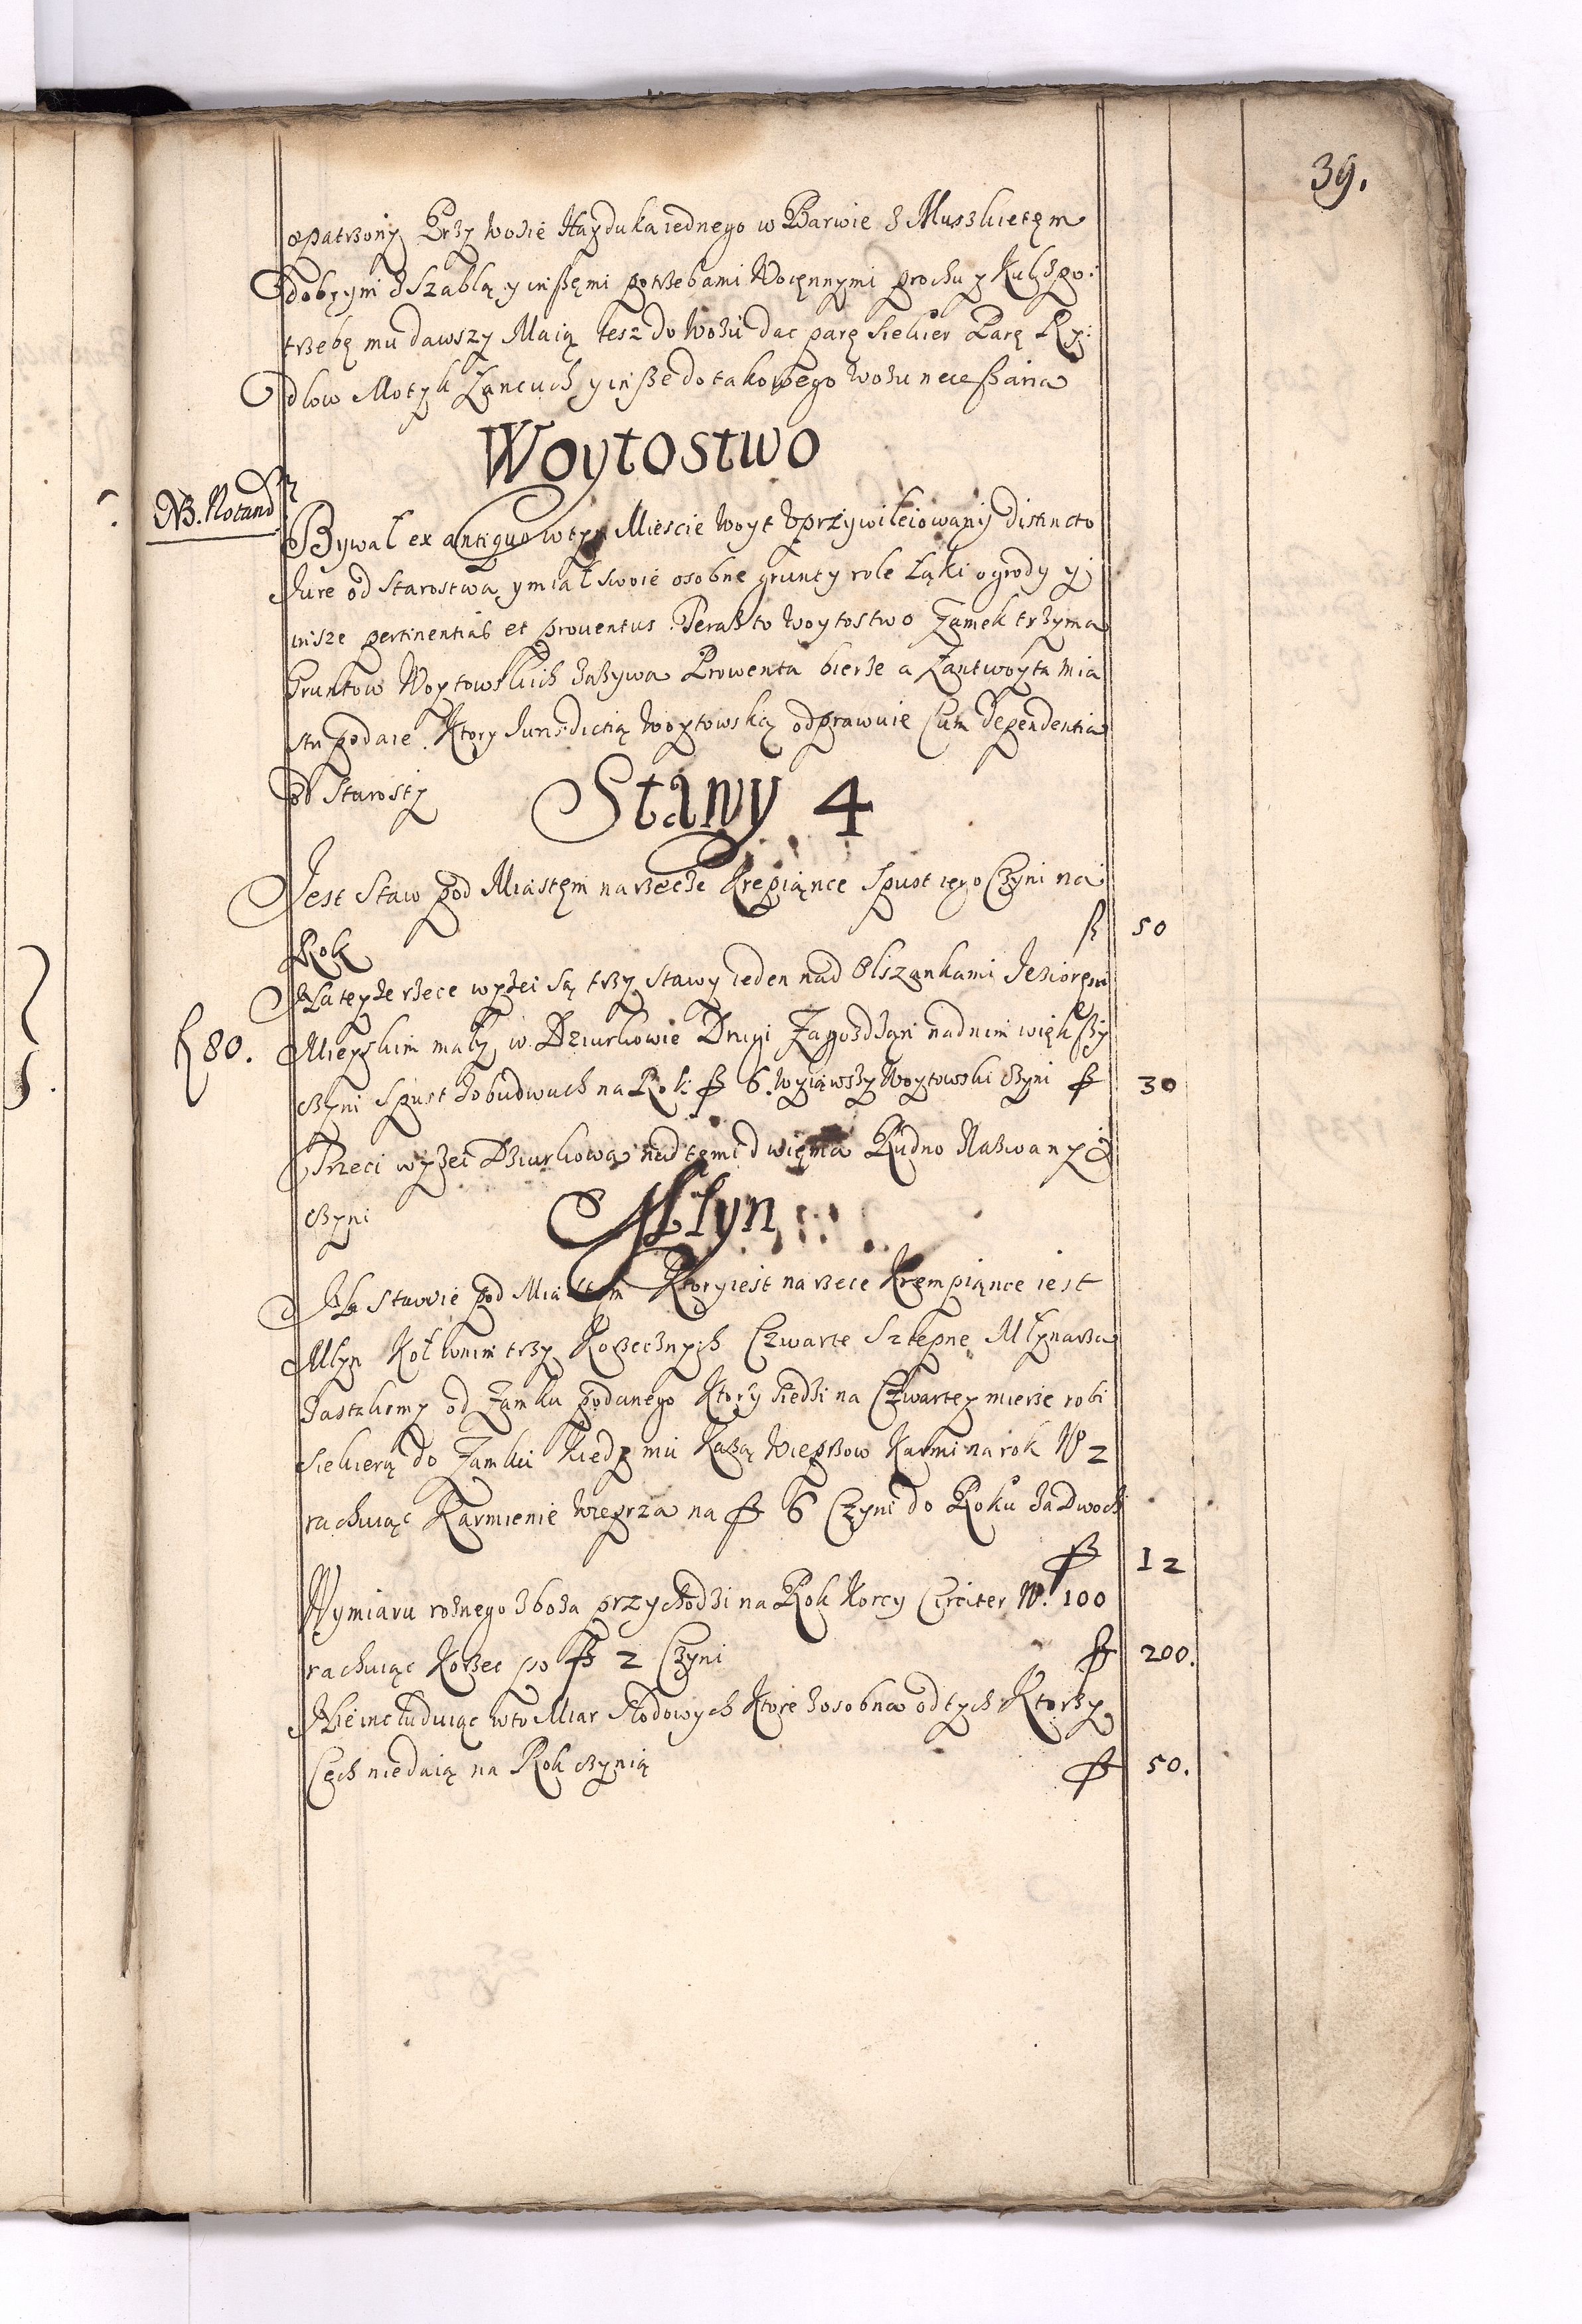 39.
opatrzony Przy wozie Hayduka iednego w Barwie z Muszkietęm
dobrym z szablą y inßęmi potrzebami Woięnnymi prochu y Kul zpo:
trzebę mu dawszy Maią tesz do Wozu dac parę siekier Parę Ry:
dlow Motyk Łancuch y inße do takowego wozu neceßaria
Woytostwo
NB. Notand
Bywał ex antiquo w tym Miescie Woyt Uprzywileiowany distincto
Jure od Starostwa y miał swoie osobne grunty role Łąki ogrody y
insze pertinentias et prouentus. Teraz to Woytostwo Zamek trzyma
Gruntow Woytowskich Zażywa Prowenta bierze a Lantwoyta mia
stu podaie. Ktory Jurisdictią Woytowską odprawuie Cum dependentia
od Starosty
Stawy 4
Jest Staw pod Miastęm na rzecze Krepiąnce Spust iego Czyni na
Rok
ƒ 50
Na teyże rzece wyżei są trzy stawy ieden nad Olszankami Jezioręm
ƒ 80.
Mieyskim mały w Dziurkowie Drugi Zagożdżąn nadnim więkßy
czyni Spust z obudwuch na Rok ƒ 6. wyiąwszy Woytowski czyni ƒ 30
Trzeci wyżei Dziurkowa nad tęmi dwięma Rudno Nazwany
czyni
Młyn
Na Stawie pod Miastęm Ktory iest na rzece Krempiąnce iest
Młyn Koł wnim trzy Korzecznych Czwarte Sztepne Młynarza
Zastałemy od Zamku podanego Ktory siedzi na Czwartey mierze robi
siekierą do Zamku kiedy mu Każą Wieprzow Karmi na rok N 2
rachuiąc Karmienie Wieprza na ƒ 6 Czyni do Roku za Dwoch
ƒ 12
Wymiaru rożnego zboża przychodzi na Rok Korcy Circiter N. 100
rachuiąc Korzec po ƒ 2 Czyni ƒ 200.
Nie includuiąc w to Miar Słodowych Ktore zosobna od tych Ktorzy
Cech niedaią na Rok czynią ƒ 50.